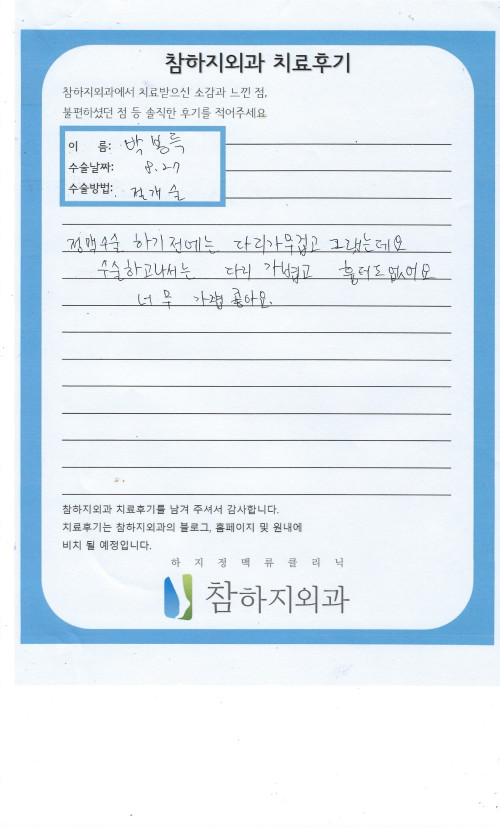 참하지외과 치료후기
참하지외과에서 치료받으신 소감과 느낀 점,
불편하셨던 점 등 솔직한 후기를 적어주세요
이 름: 박봉득
수술날짜: 8.27
수술방법: 절개술
정맥수술 하기전에는 다리가무겁고 그랬는데요
수술하고나서는 다리 가볍고 흉터도없어요
너무 가볍 좋아요.
참하지외과 치료후기를 남겨 주셔서 감사합니다.
치료후기는 참하지외과의 블로그, 홈페이지 및 원내에
비치 될 예정입니다.
하지정맥류클리닉
참하지외과